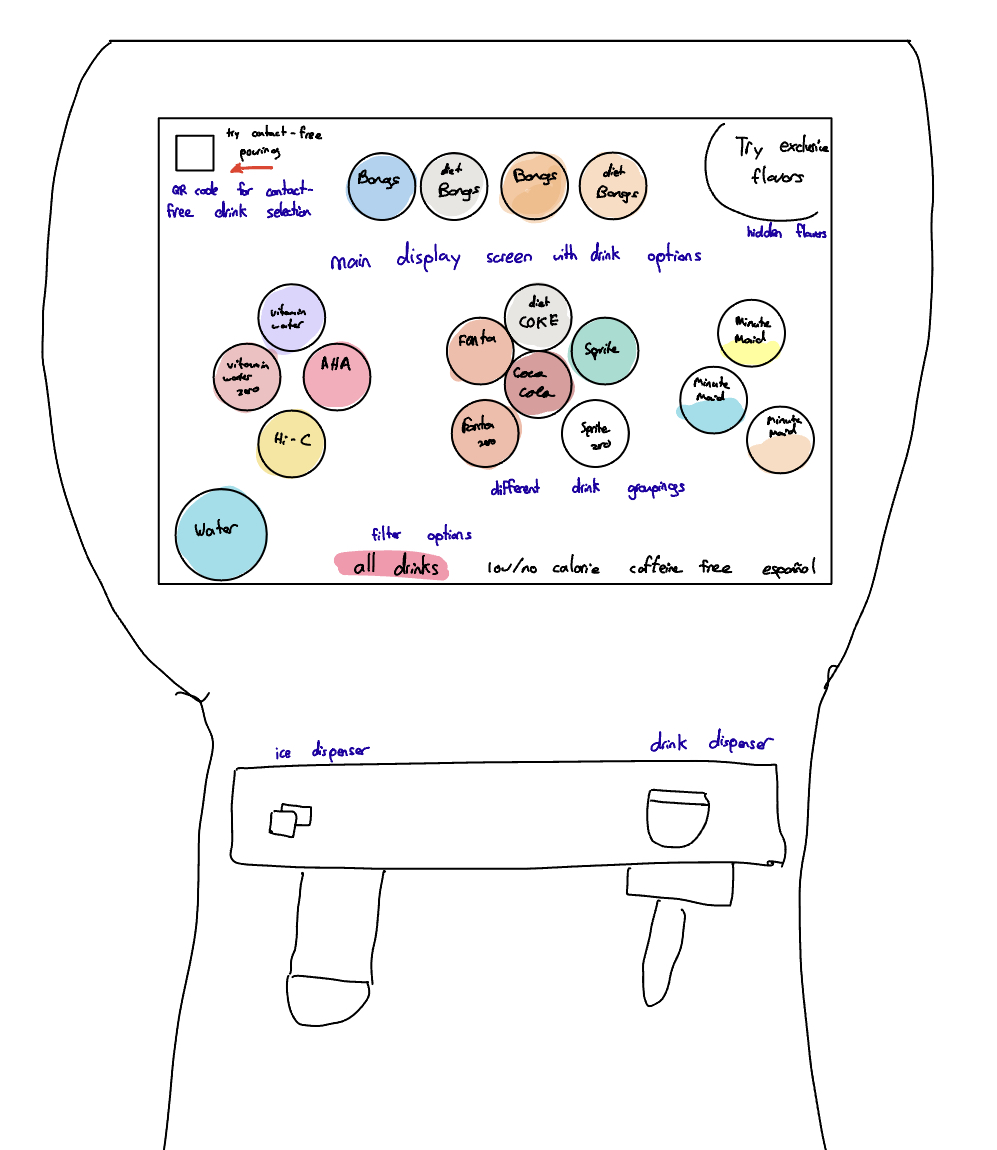 try contact-free
pouring
QR code for contact-
free drink selection
Bongs
diet
Bongs
Bongs
diet
Bongs
Try exclusive
flavors
hidden flavors
main display screen with drink options
vitamin
water
vitamin
water
zero
AHA
Hi-C
diet
COKE
Fanta
Sprite
Coca
Cola
Fanta
zero
Sprite
zero
Minute
Maid
Minute
Maid
Minute
Maid
different drink groupings
Water
filter options
all drinks low/no calorie caffeine free español
ice dispenser
drink dispenser